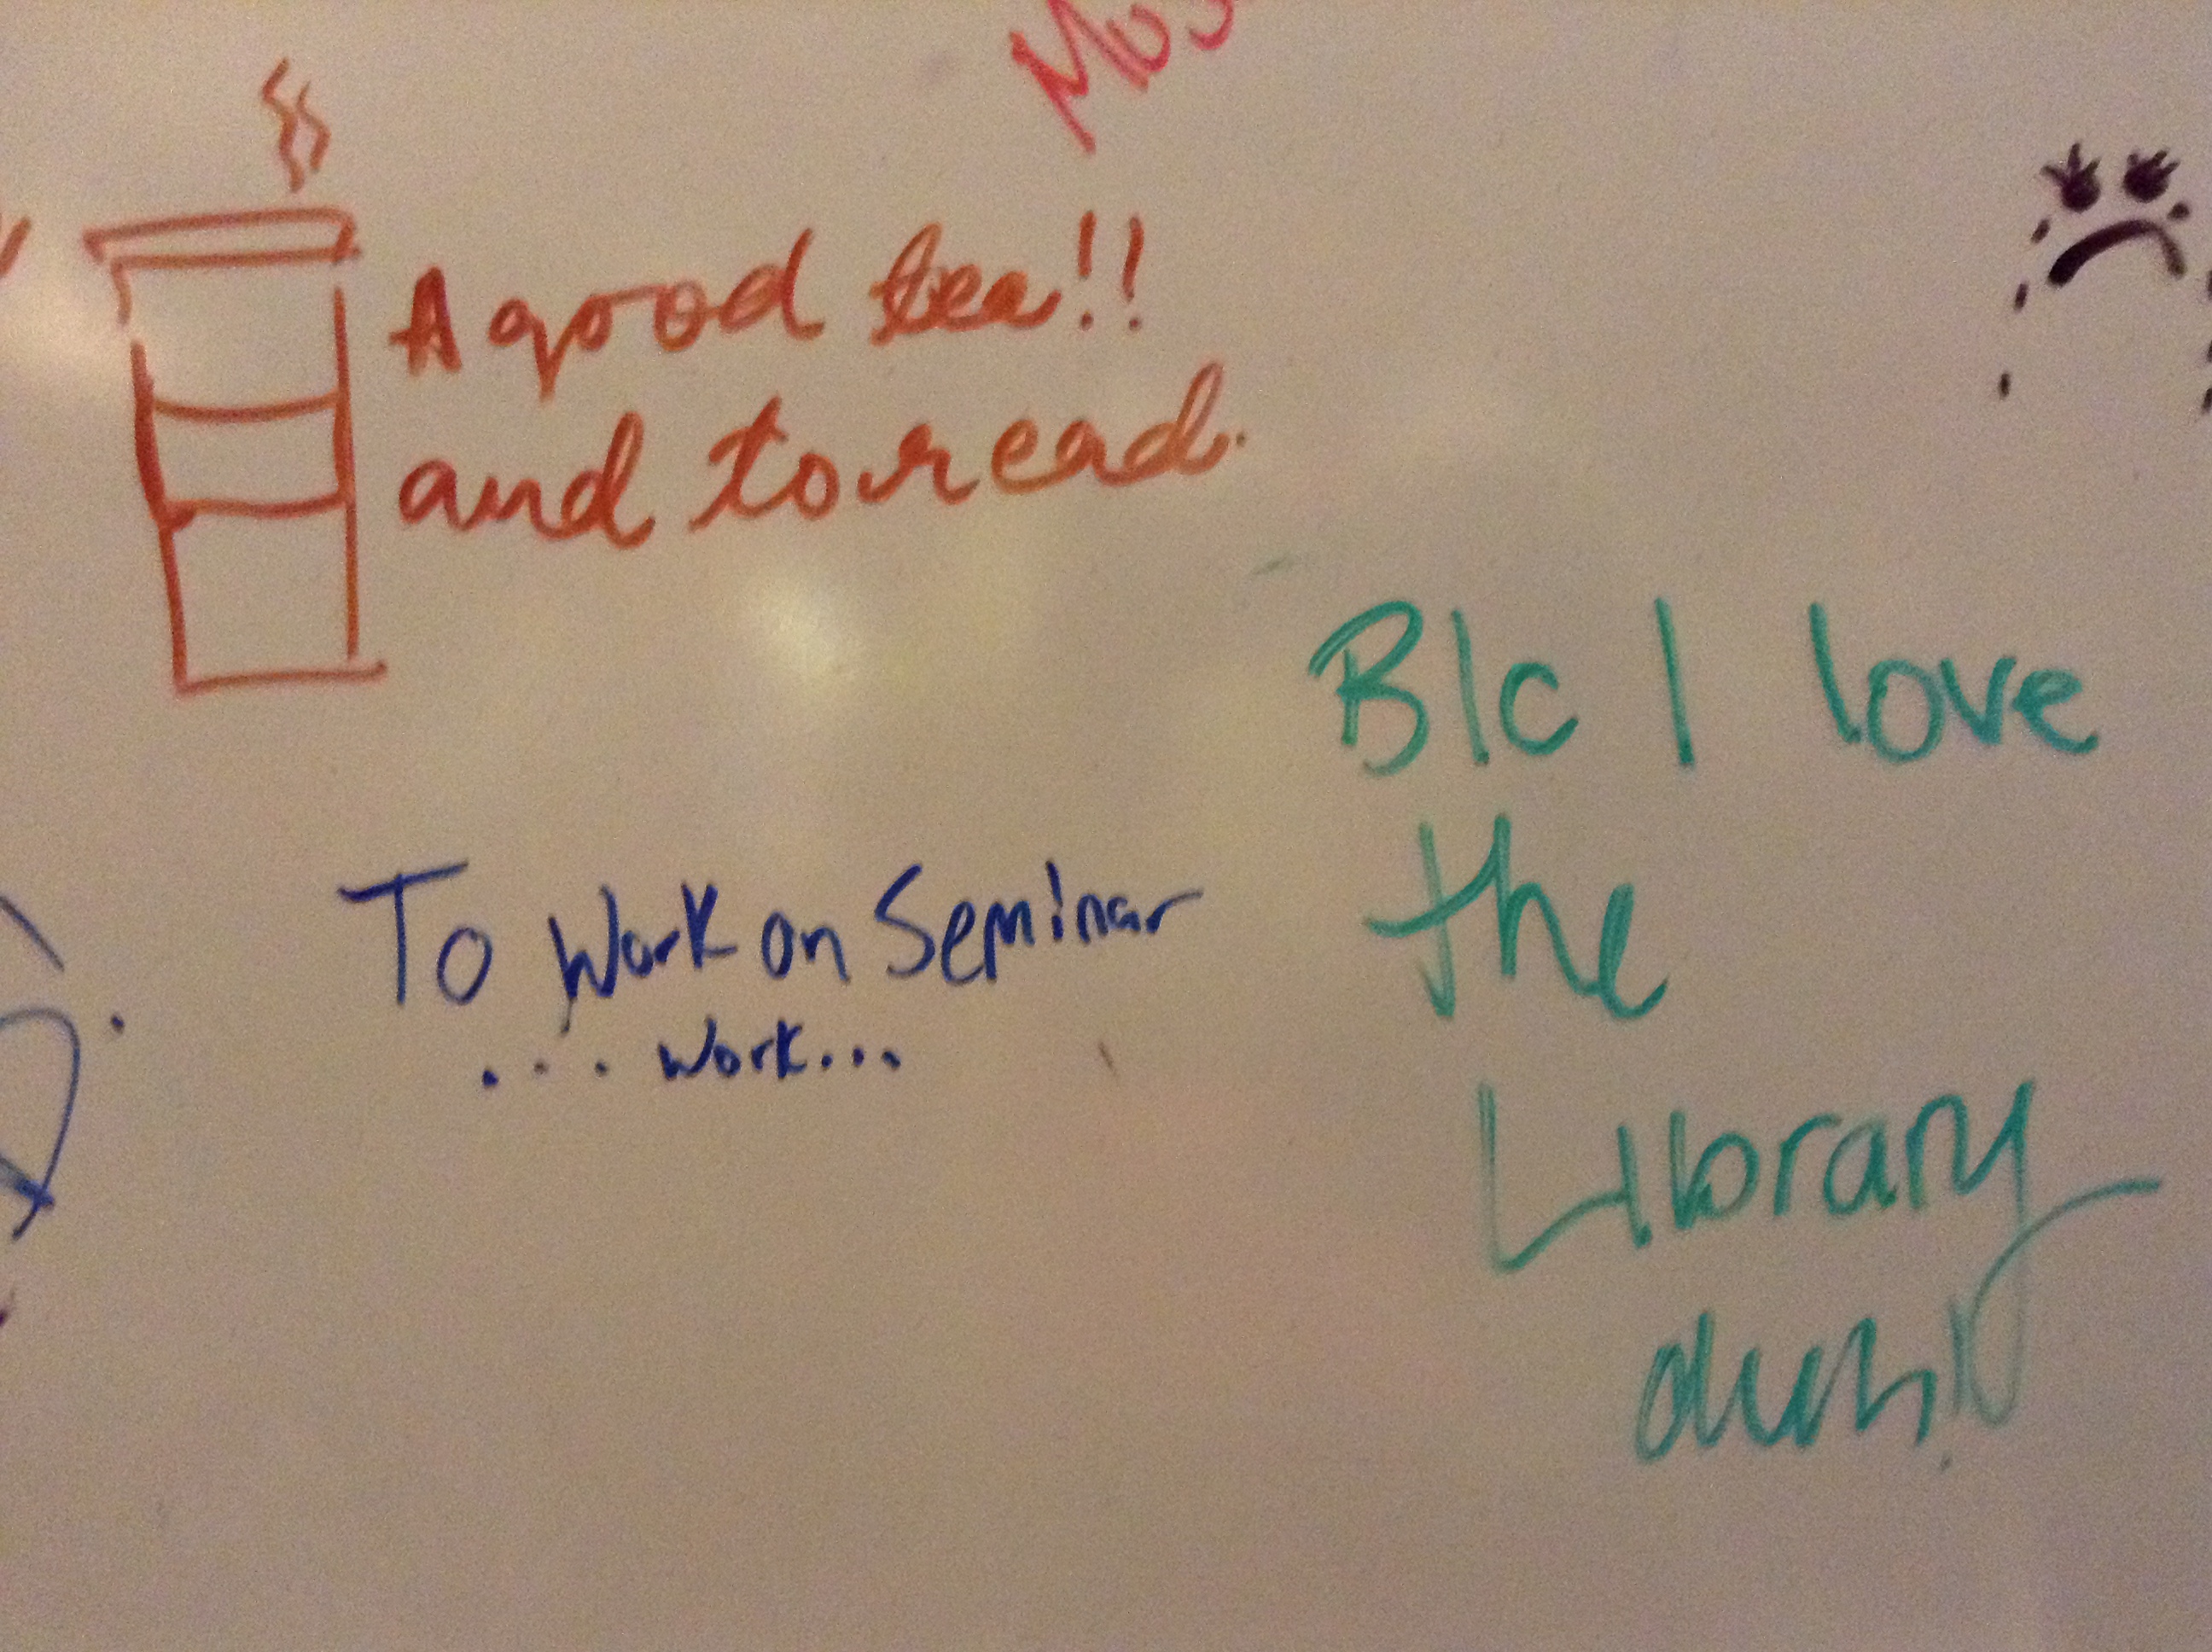 A good tea!!
and to read.
To Work on Seminar
... work...
B/c I love
the
Library
duh!